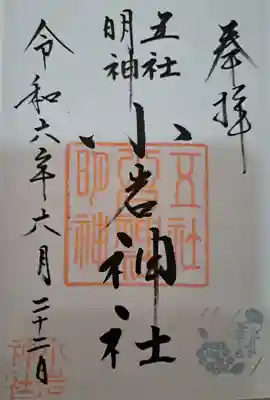 奉拝
五社
明神
小岩神社
五社
明神
令和六年六月二十二日
小岩
神社